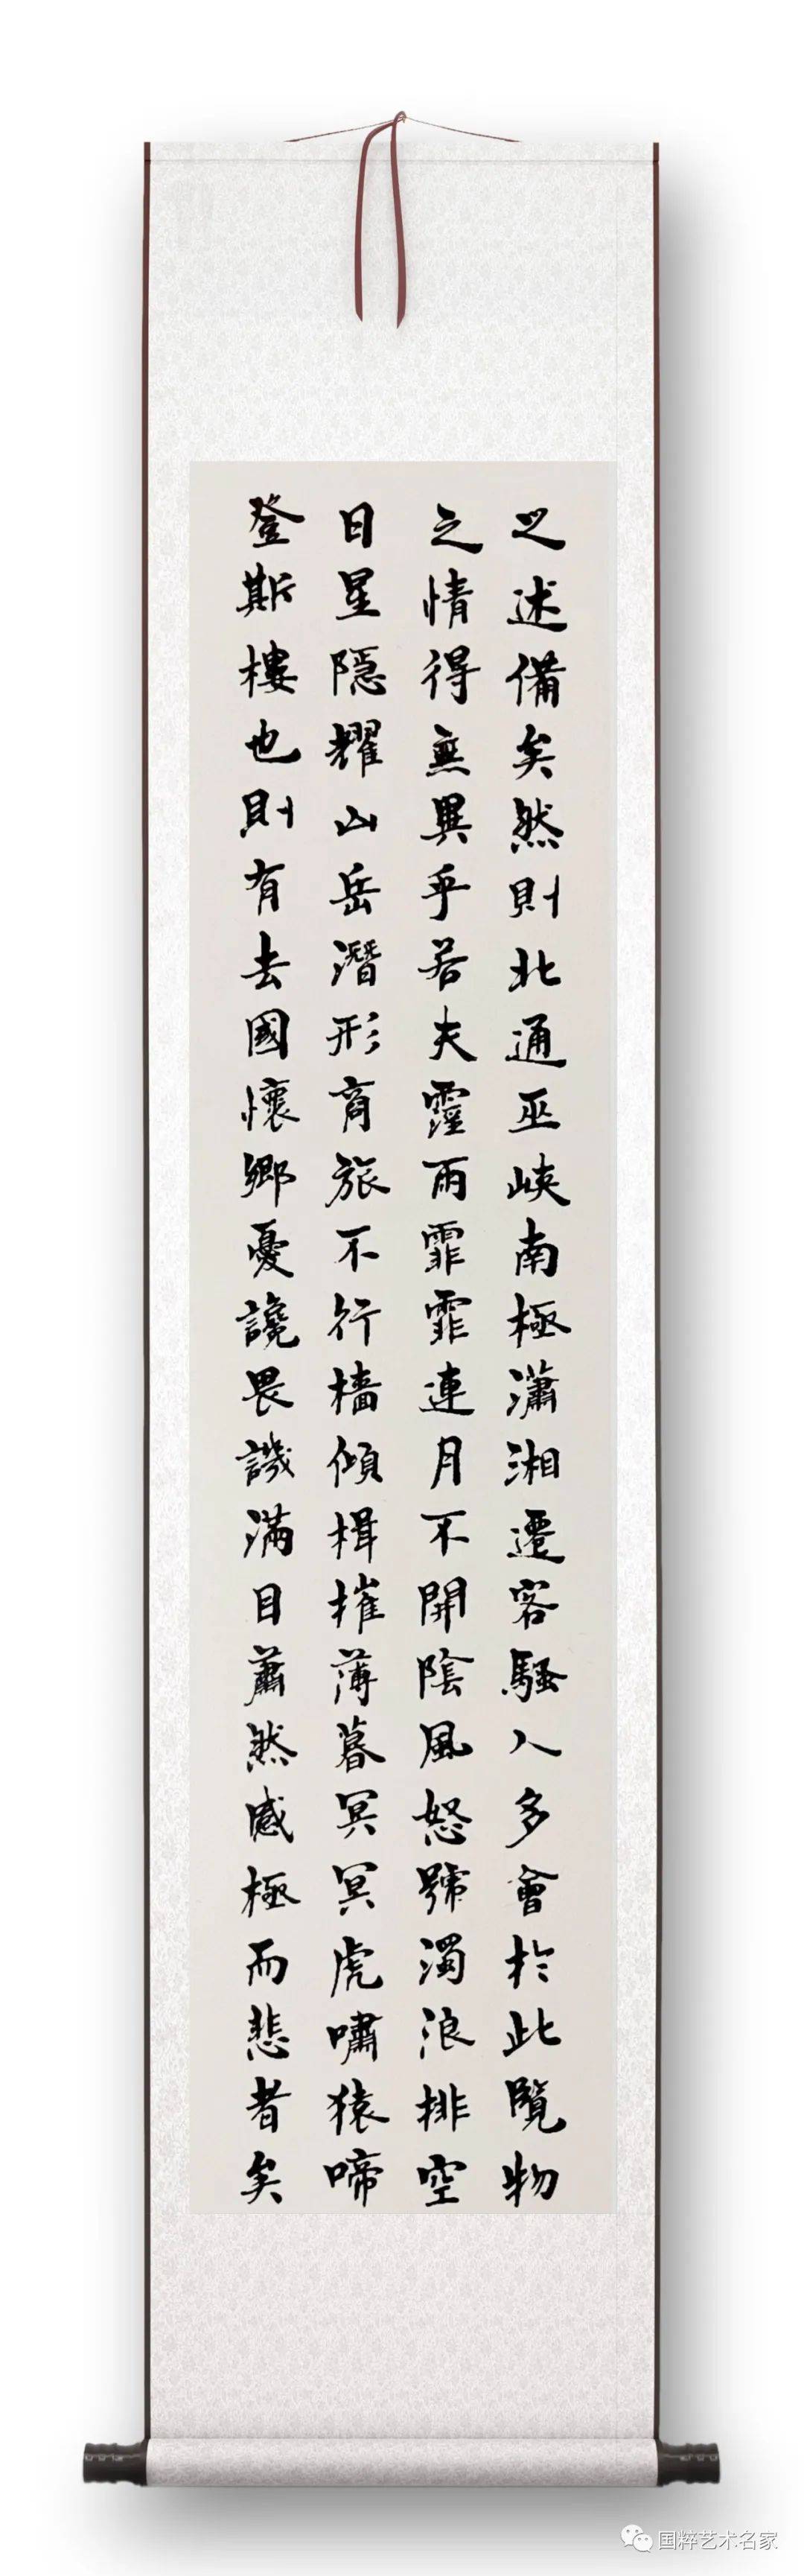 之述備矣然則北通巫峽南極瀟湘遷客騷人多會於此覽物
之情得無異乎若夫霪雨霏霏連月不開陰風怒號濁浪排空
日星隱耀山岳潛形商旅不行檣傾楫摧薄暮冥冥虎嘯猿啼
登斯樓也則有去國懷鄉憂讒畏譏滿目蕭然感極而悲者矣
国粹艺术名家